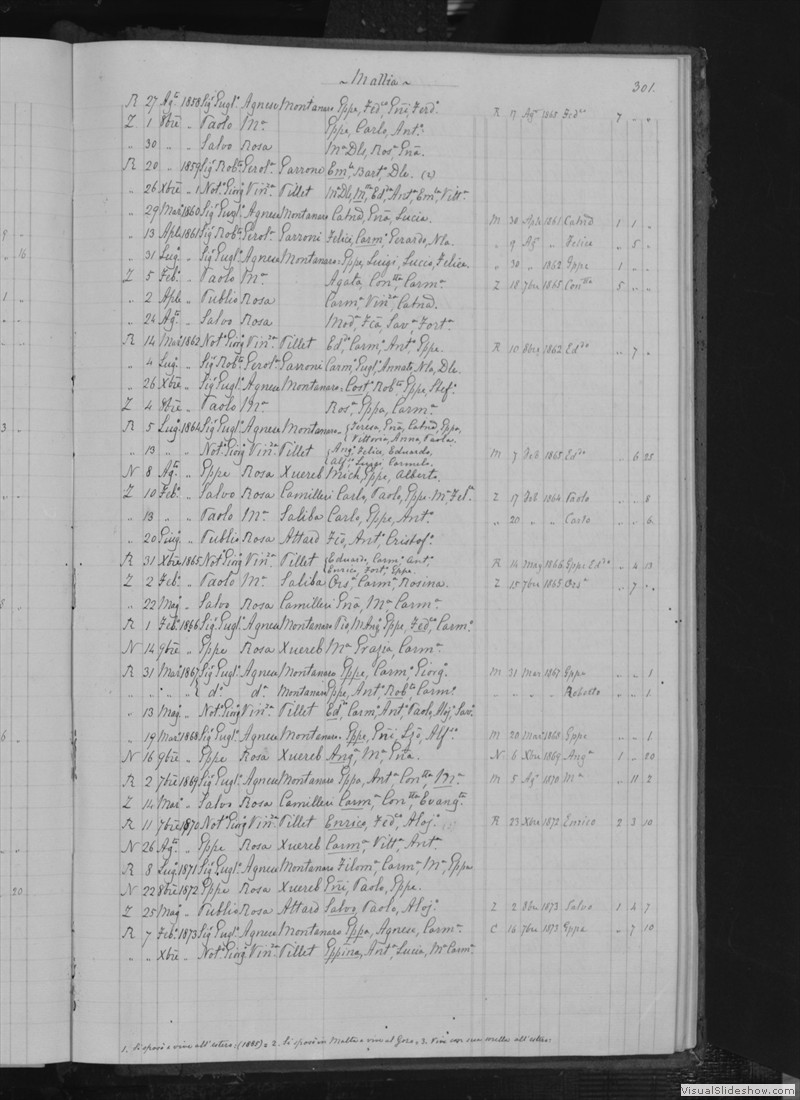 ~ Mallia ~
301.
R 27 Ag. 1858 Sig. Eugl. Agnese Montanaro Eppe, Fed., Eñi, Ferd. R 17 Ag. 1865 Fed. 7 " "
Z 1 8bre " Paolo Ma. Eppa, Carlo, Ant.
" 30 " " Salvo Rosa Ma. Dls, Ros. Eña.
R 20 " 1859 Sig. Rob. Perol. Parroni Em., Bart. Dls. (2)
" 26 Xbre " Not. Giorg. Vin. Pillet Ed. Ant. Em. Vitt.
" 29 Mar. 1860 Sig. Eugl. Agnese Montanaro Catnd, Eña, Lucia. M 30 Apl. 1861 Catnd 1 1 "
" 13 Aple 1861 Sig. Rob. Perol. Parroni Felice, Carm. Gerardo, Nla. " 9 Ag. " Felice " 5 "
" 31 Lug. " Sig. Eugl. Agnese Montanaro Eppe, Luigi, Lucio, Felice. " 30 " 1862 Eppe 1 " "
Z 5 Feb. " Paolo Ma. Agata, Con. Carm. Z 18 7bre 1865 Con. 5 " "
" 2 Aple " Publio Rosa Carm. Vin. Catnd.
" 24 Ag. " Salvo Rosa Mod. Fca, Sav. Fort.
R 14 Mar. 1862 Not. Giorg. Vin. Pillet Ed. Carm. Ant. Eppe. R 10 8bre 1862 Ed. " 7 "
" 4 Lug. " Sig. Rob. Perol. Parroni Carm. Eugl. Annato, Nla, Dls.
" 26 Xbre " Sig. Eugl. Agnese Montanaro Cost. Rob. Eppe, Stef.
Z 4 8bre " Paolo Ma. Ros. Eppa, Carm.
R 5 Lug. 1864 Sig. Eugl. Agnese Montanaro Teresa, Eña, Catnd, Eppa,
Vittoria, Anna, Paola.
" 13 " " Not. Giorg. Vin. Pillet Ang. Felice, Eduardo, M 7 Feb. 1865 Ed. " 6 25
Alf. Luigi Carmelo.
N 8 Ag. " Eppe Rosa Xuereb Mich, Eppe, Alberto.
Z 10 Feb. " Salvo Rosa Camilleri Carlo, Paolo, Eppe Ma. Fel. Z 17 Feb 1864 Paolo " " 8
" 13 " " Paolo Ma. Saliba Carlo, Eppe, Ant. " 20 " " Carlo " " 6
" 20 Giug. " Publio Rosa Attard Fco, Ant. Cristof.
R 31 Xbre 1865 Not. Giorg. Vin. Pillet Eduardo, Carm. Ant. R 14 Mag 1866 Eppe Ed. " 4 13
Enrico, Fort. Eppe.
Z 2 Feb. " Paolo Ma. Saliba Ors. Carm. Rosina. Z 15 7bre 1865 Ors. " 7 "
" 22 Mag. " Salvo Rosa Camilleri Eña, Ma. Carm.
R 1 Feb. 1866 Sig. Eugl. Agnese Montanaro Pio, M. Ang. Eppe, Fed. Carm.
N 14 9bre " Eppe Rosa Xuereb Ma. Grazia Carm.
R 31 Mar. 1867 Sig. Eugl. Agnese Montanaro Eppe, Carm. Giorg. M 31 Mar 1867 Eppe " " 1
" " " " d. d. Montanaro Eppe, Ant. Rob. Carm. " " " " Roberto " " 1
" 13 Mag. " Not. Giorg. Vin. Pillet Ed. Carm. Ant. Paolo, Aloj. Sav.
" 19 Mar. 1868 Sig. Eugl. Agnese Montanaro Eppe, Eñi, Alf. M 20 Mar 1868 Eppe " " 1
N 16 9bre " Eppe Rosa Xuereb Ang. Ma. Eña. N 6 Xbre 1869 Ang. 1 " 20
R 2 7bre 1869 Sig. Eugl. Agnese Montanaro Eppa, Ant. Con. Ma. M 5 Ag. 1870 Ma. " 11 2
Z 14 Mar. " Salvo Rosa Camilleri Carm. Con. Evang.
R 11 7bre 1870 Not. Giorg. Vin. Pillet Enrico, Fed. Aloj. R 23 Xbre 1872 Enrico 2 3 10
N 26 Ag. " Eppe Rosa Xuereb Carm. Vitt. Ant.
R 8 Lug. 1871 Sig. Eugl. Agnese Montanaro Filom. Carm. Ma. Eppa
N 22 8bre 1872 Eppe Rosa Xuereb Eñi, Paolo, Eppe.
Z 25 Mag. " Publio Rosa Attard Salvo, Paolo, Aloj. Z 2 8bre 1873 Salvo 1 4 7
R 7 Feb. 1873 Sig. Eugl. Agnese Montanaro Eppa, Agnese, Carm. C 16 7bre 1873 Eppa " 7 10
" " Xbre " Not. Giorg. Vin. Pillet Eppina, Ant. Lucia, Ma. Carm.
1. Si sposò e vive all'estero; (1885) 2. Si sposò in Malta e vive al Gozo. 3. Vive con sua all'estero.
VisualSlideshow.com